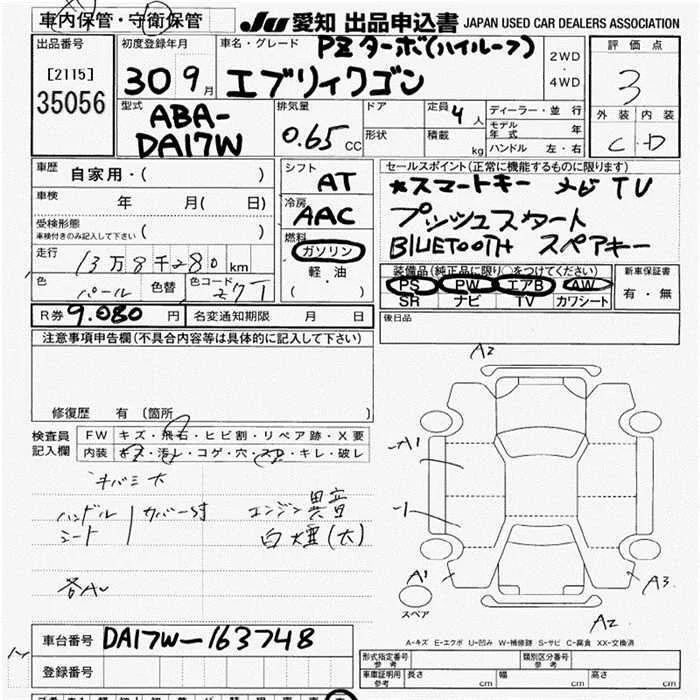 車内保管・守衛保管
JU 愛知 出品申込書 JAPAN USED CAR DEALERS ASSOCIATION
出品番号
[2115]
35056
初度登録年月
30 9月
車名・グレード PZターボ(ハイルーフ)
エブリィワゴン
2WD
・
4WD
評価点
3
外装 内装
C・D
型式 ABA-
DA17W
排気量
0.65 CC
ドア
形状
定員 4人
積載 kg
ディーラー・並行
モデル年式 年
ハンドル 左・右
車歴 自家用・( )
車検 年 月( 日)
受検形態
車検付きのみ記入して下さい ( )
走行 13万8千280 km
色 パール 色替 色コード Z7T
シフト AT
冷房 AAC
燃料
ガソリン
軽・油
( )
セールスポイント(正常に機能するものに限ります)
*スマートキー ナビ TV
プッシュスタート
BlUETOOTH スペアキー
装備品(純正品に限り○をつけてください)
PS PW エアB AW
SR ナビ TV カワシート
新車保証書
有・無
R券 9.080 円 名変通知期限 月 日
後日品
注意事項申告欄(不具合内容等は具体的に記入して下さい)
修復歴 有 (箇所 )
検査員
記入欄
FW キズ・飛石・ヒビ割・リペア跡・X要
内装 キズ・汚し・コゲ・穴・スレ・キレ・破レ
キバミ大
ハンドル カバー付 エンジン異音
シート 白煙(大)
各AU
A2
A1
A1
A3
A2
スペア
A-キズ E-エクボ U-凹み W-補修跡 S-サビ C-腐食 XX-交換済
車台番号 DA17W-163748
登録番号
形式指定番号 参考
類別区分番号 参考
車庫証明用 参考 長さ cm 幅 cm 高さ cm